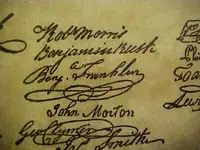 Robt Morris
Benjamin Rush
Benja. Franklin
John Morton
Geo Clymer
Jas. Smith